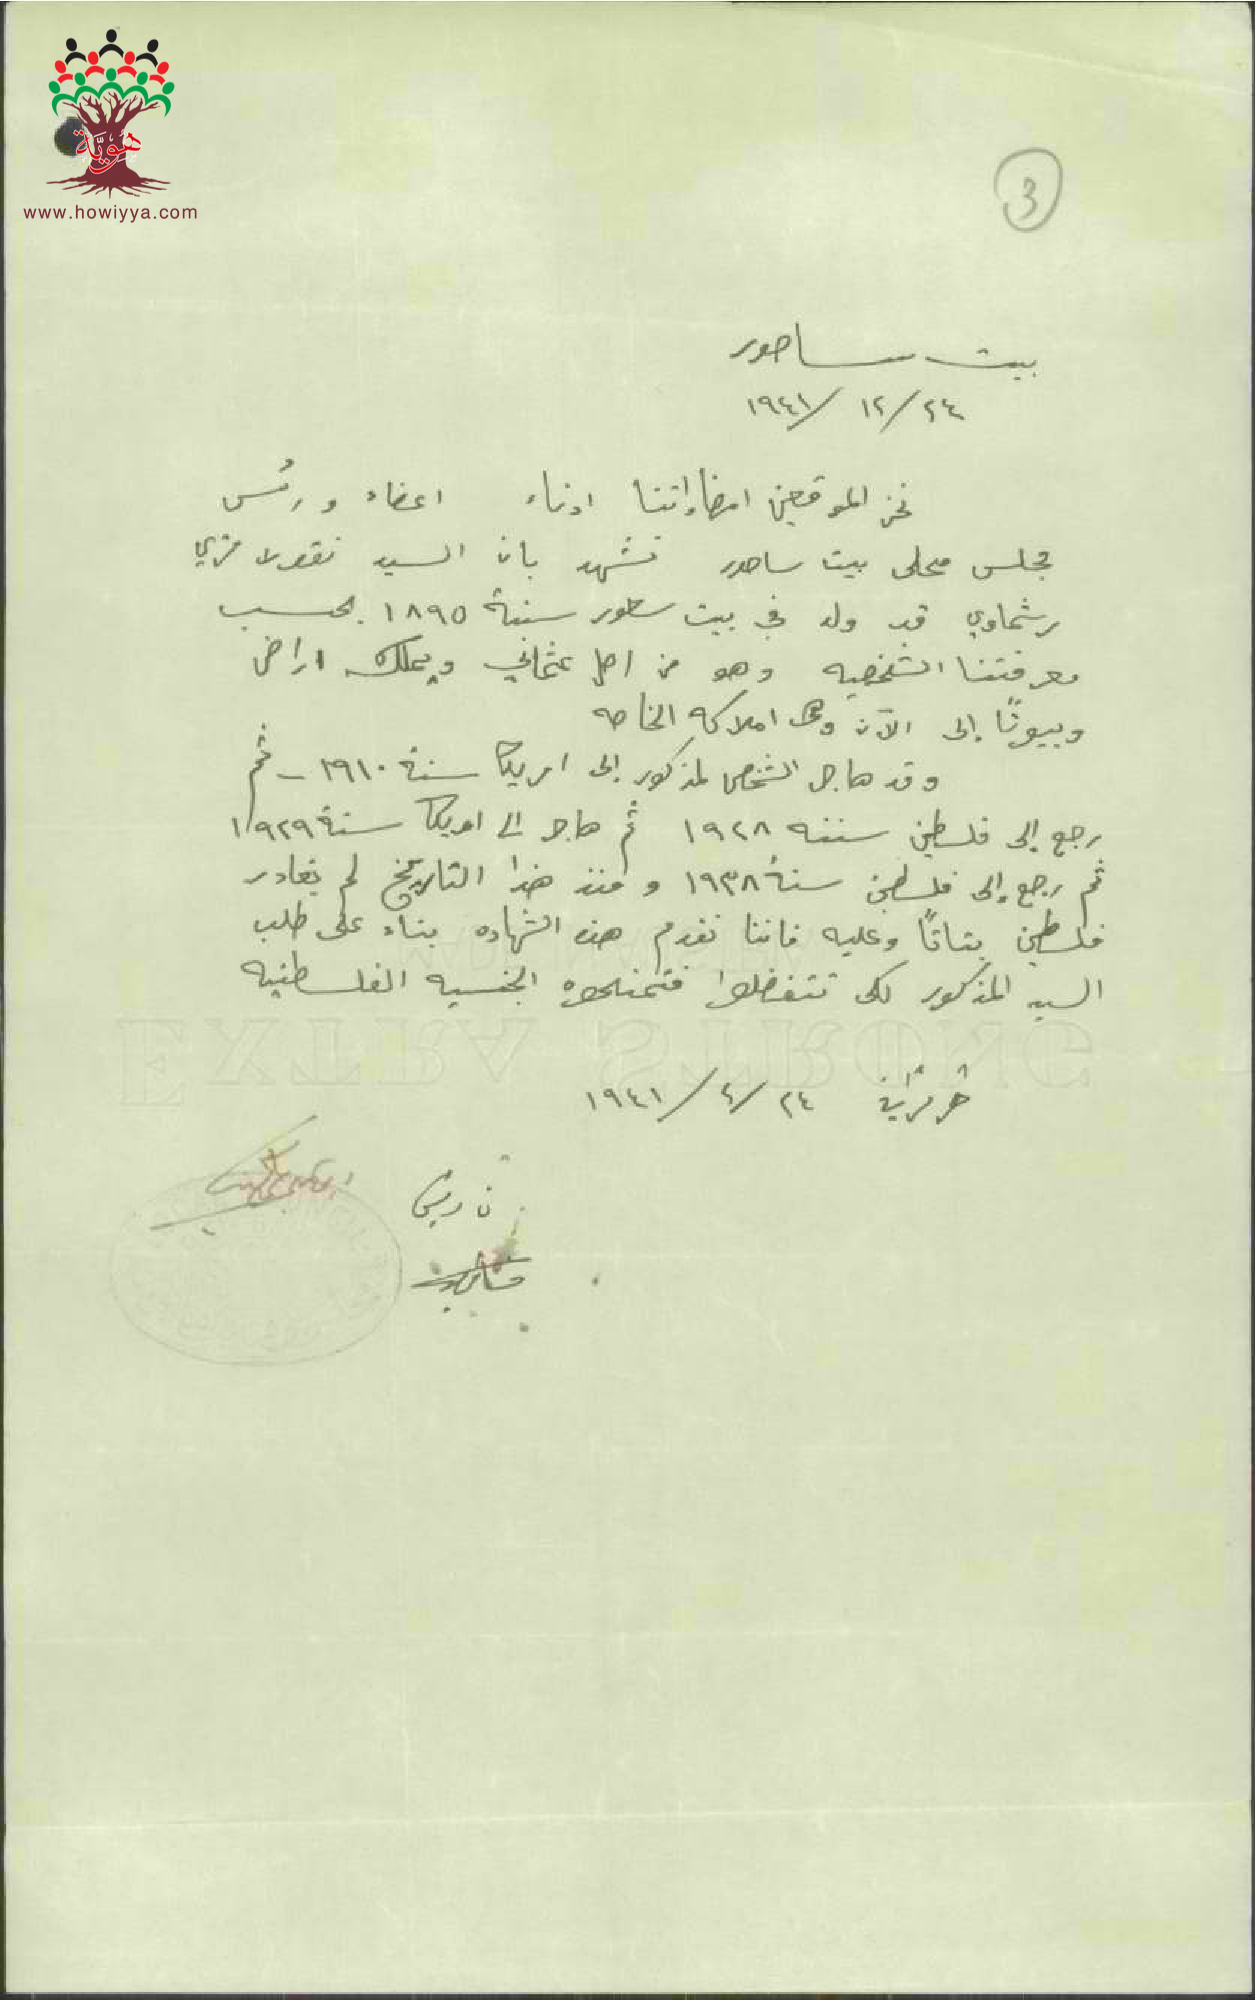 هوية
www.howiyya.com
3
بيت ساحور
٢٤/ ١٢ /١٩٤١
نحن الموقعين امضاءاتنا ادناه اعضاء ورئيس
مجلس محلي بيت ساحور نشهد بان السيد نقولا
رشماوي قد ولد في بيت ساحور سنة ١٨٩٥ بحسب
معرفتنا الشخصيه وهو من اصل عثماني ويملك اراض
وبيوتًا إلى الآن وهي املاكه الخاصه
وقد هاجر الشخص المذكور إلى امريكا سنة ١٩١٠ - ثم
رجع إلى فلسطين سنة ١٩٢٨ ثم هاجر الى امريكا سنة ١٩٢٩
ثم رجع إلى فلسطين سنة ١٩٣٨ ومنذ هذا التاريخ لم يغادر
فلسطين بتاتًا وعليه فاننا نقدم هذه الشهاده بناء على طلب
السيد المذكور لكي تتفضلوا فتمنحوه الجنسيه الفلسطنيه
٢٤ /٤/ ١٩٤١
EXTRA STRONG